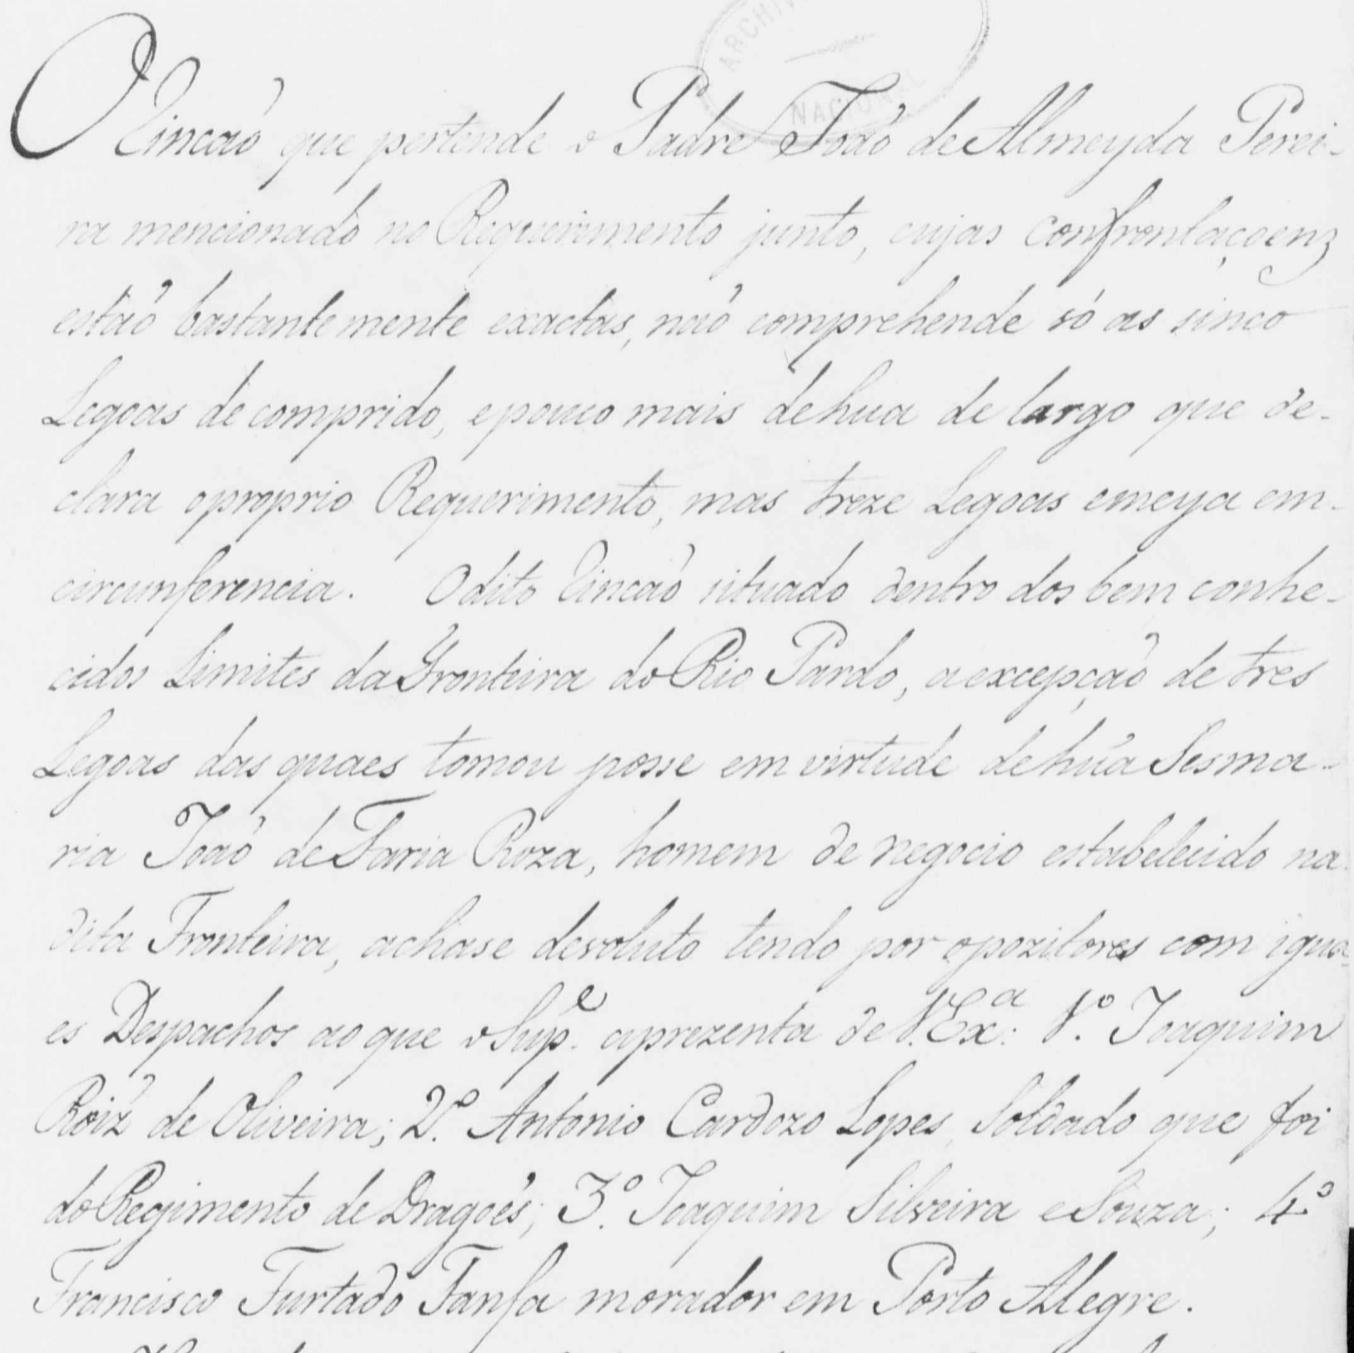 ARCHIVO NACIONAL
O Rincaõ que pertende o Padre Joaõ de Almeyda Perei-
ra mencionado no Requerimento junto, cujas confrontaçoens
estaõ bastantemente exactas, naõ comprehende só as sinco
Legoas de comprido, e pouco mais de hua de largo que de-
clara o proprio Requerimento, mas treze Legoas e meya em-
circunferencia. O dito Rincaõ situado dentro dos bem conhe-
cidos Limites da Fronteira do Rio Pardo, a excepçaõ de tres
Legoas das quaes tomou posse em virtude de húa Sesma-
ria Joaõ de Faria Roza, homem de negocio estabelecido na
dita Fronteira, achase devoluto tendo por opozitores com igua-
es Despachos ao que o Sup.e aprezenta de V. Ex.a: 1.o Joaquim
Roiz de Oliveira; 2.o Antonio Cardozo Lopes, Soldado que foi
do Regimento de Dragoẽs; 3.o Joaquim Silveira e Souza; 4.o
Francisco Furtado Fanfa morador em Porto Alegre.